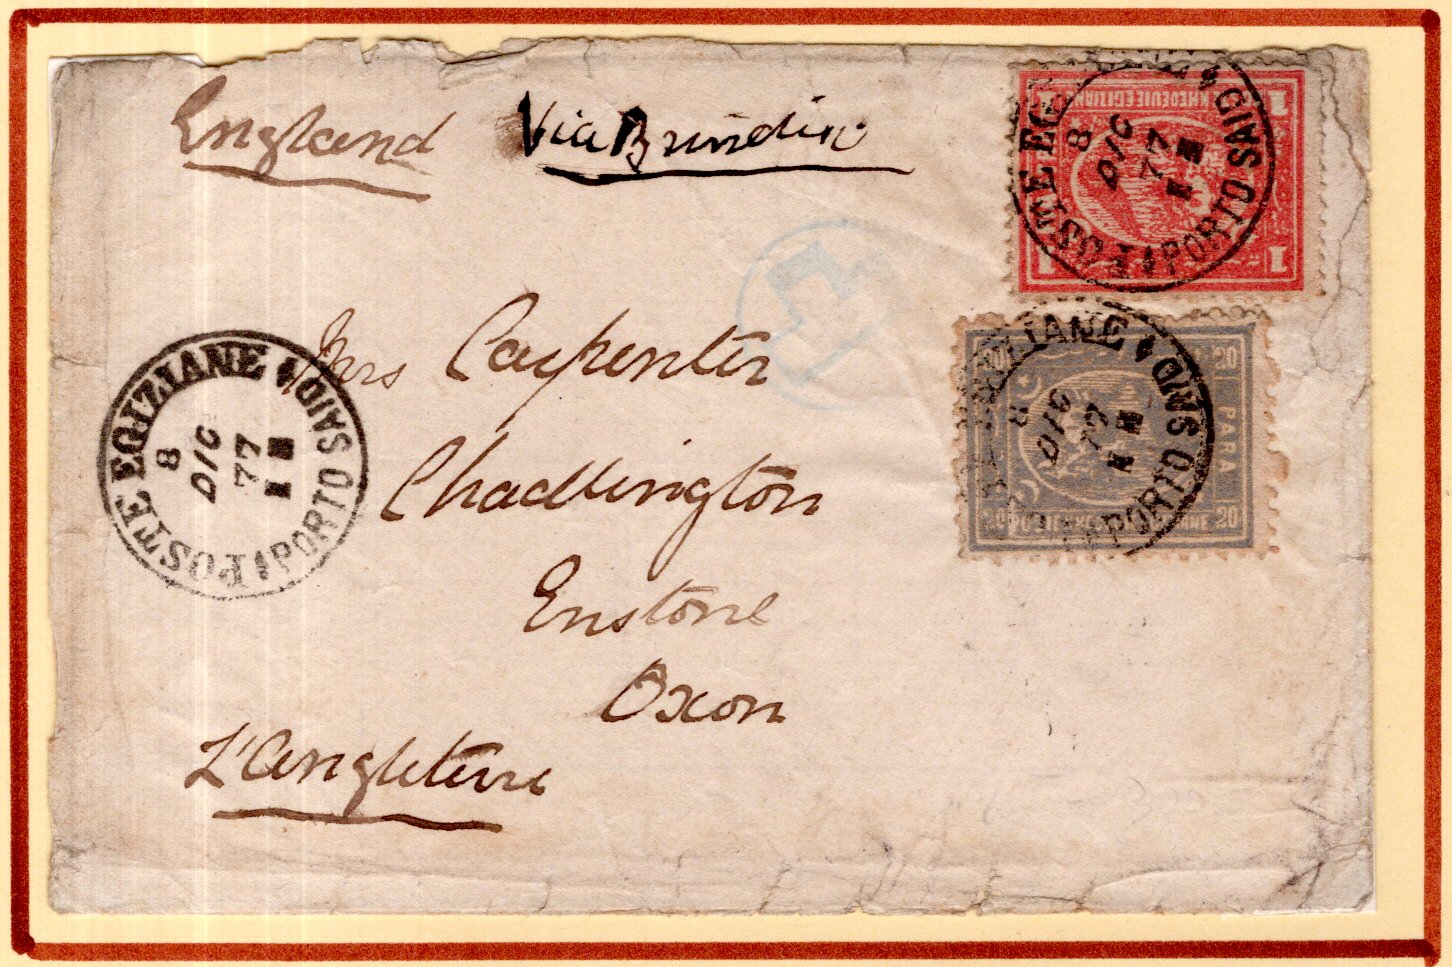 England Via Brindisi
Mrs Carpenter
Chadlington
Enstone
Oxon
L'Angleterre
POSTE EGIZIANE PORTO SAID
8
DIC
77
POSTE EG PORTO SAID
8
DIC
77
1 1
1 1
IZIANE PORTO SAID
8
DIC
77
20 20
PARA
20 20